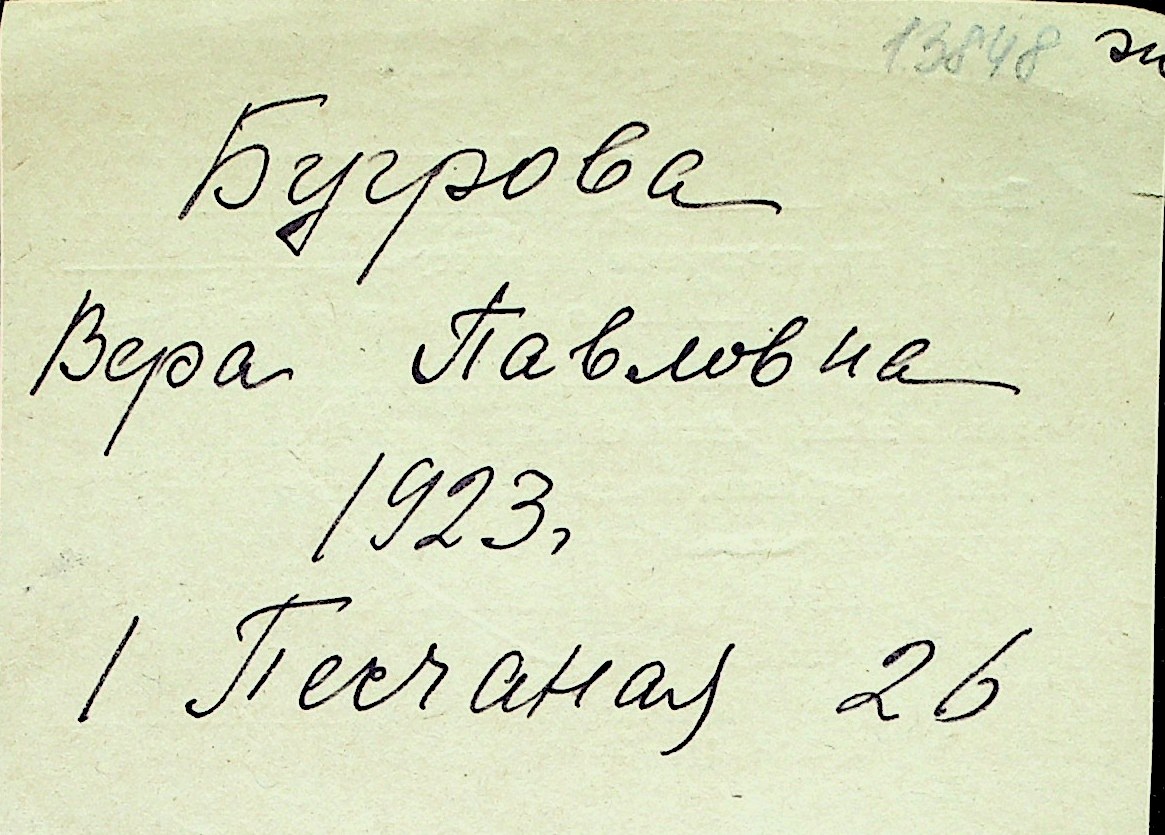 13848 ж
Бугрова
Вера Павловна
1923г
1 Песчаная 26